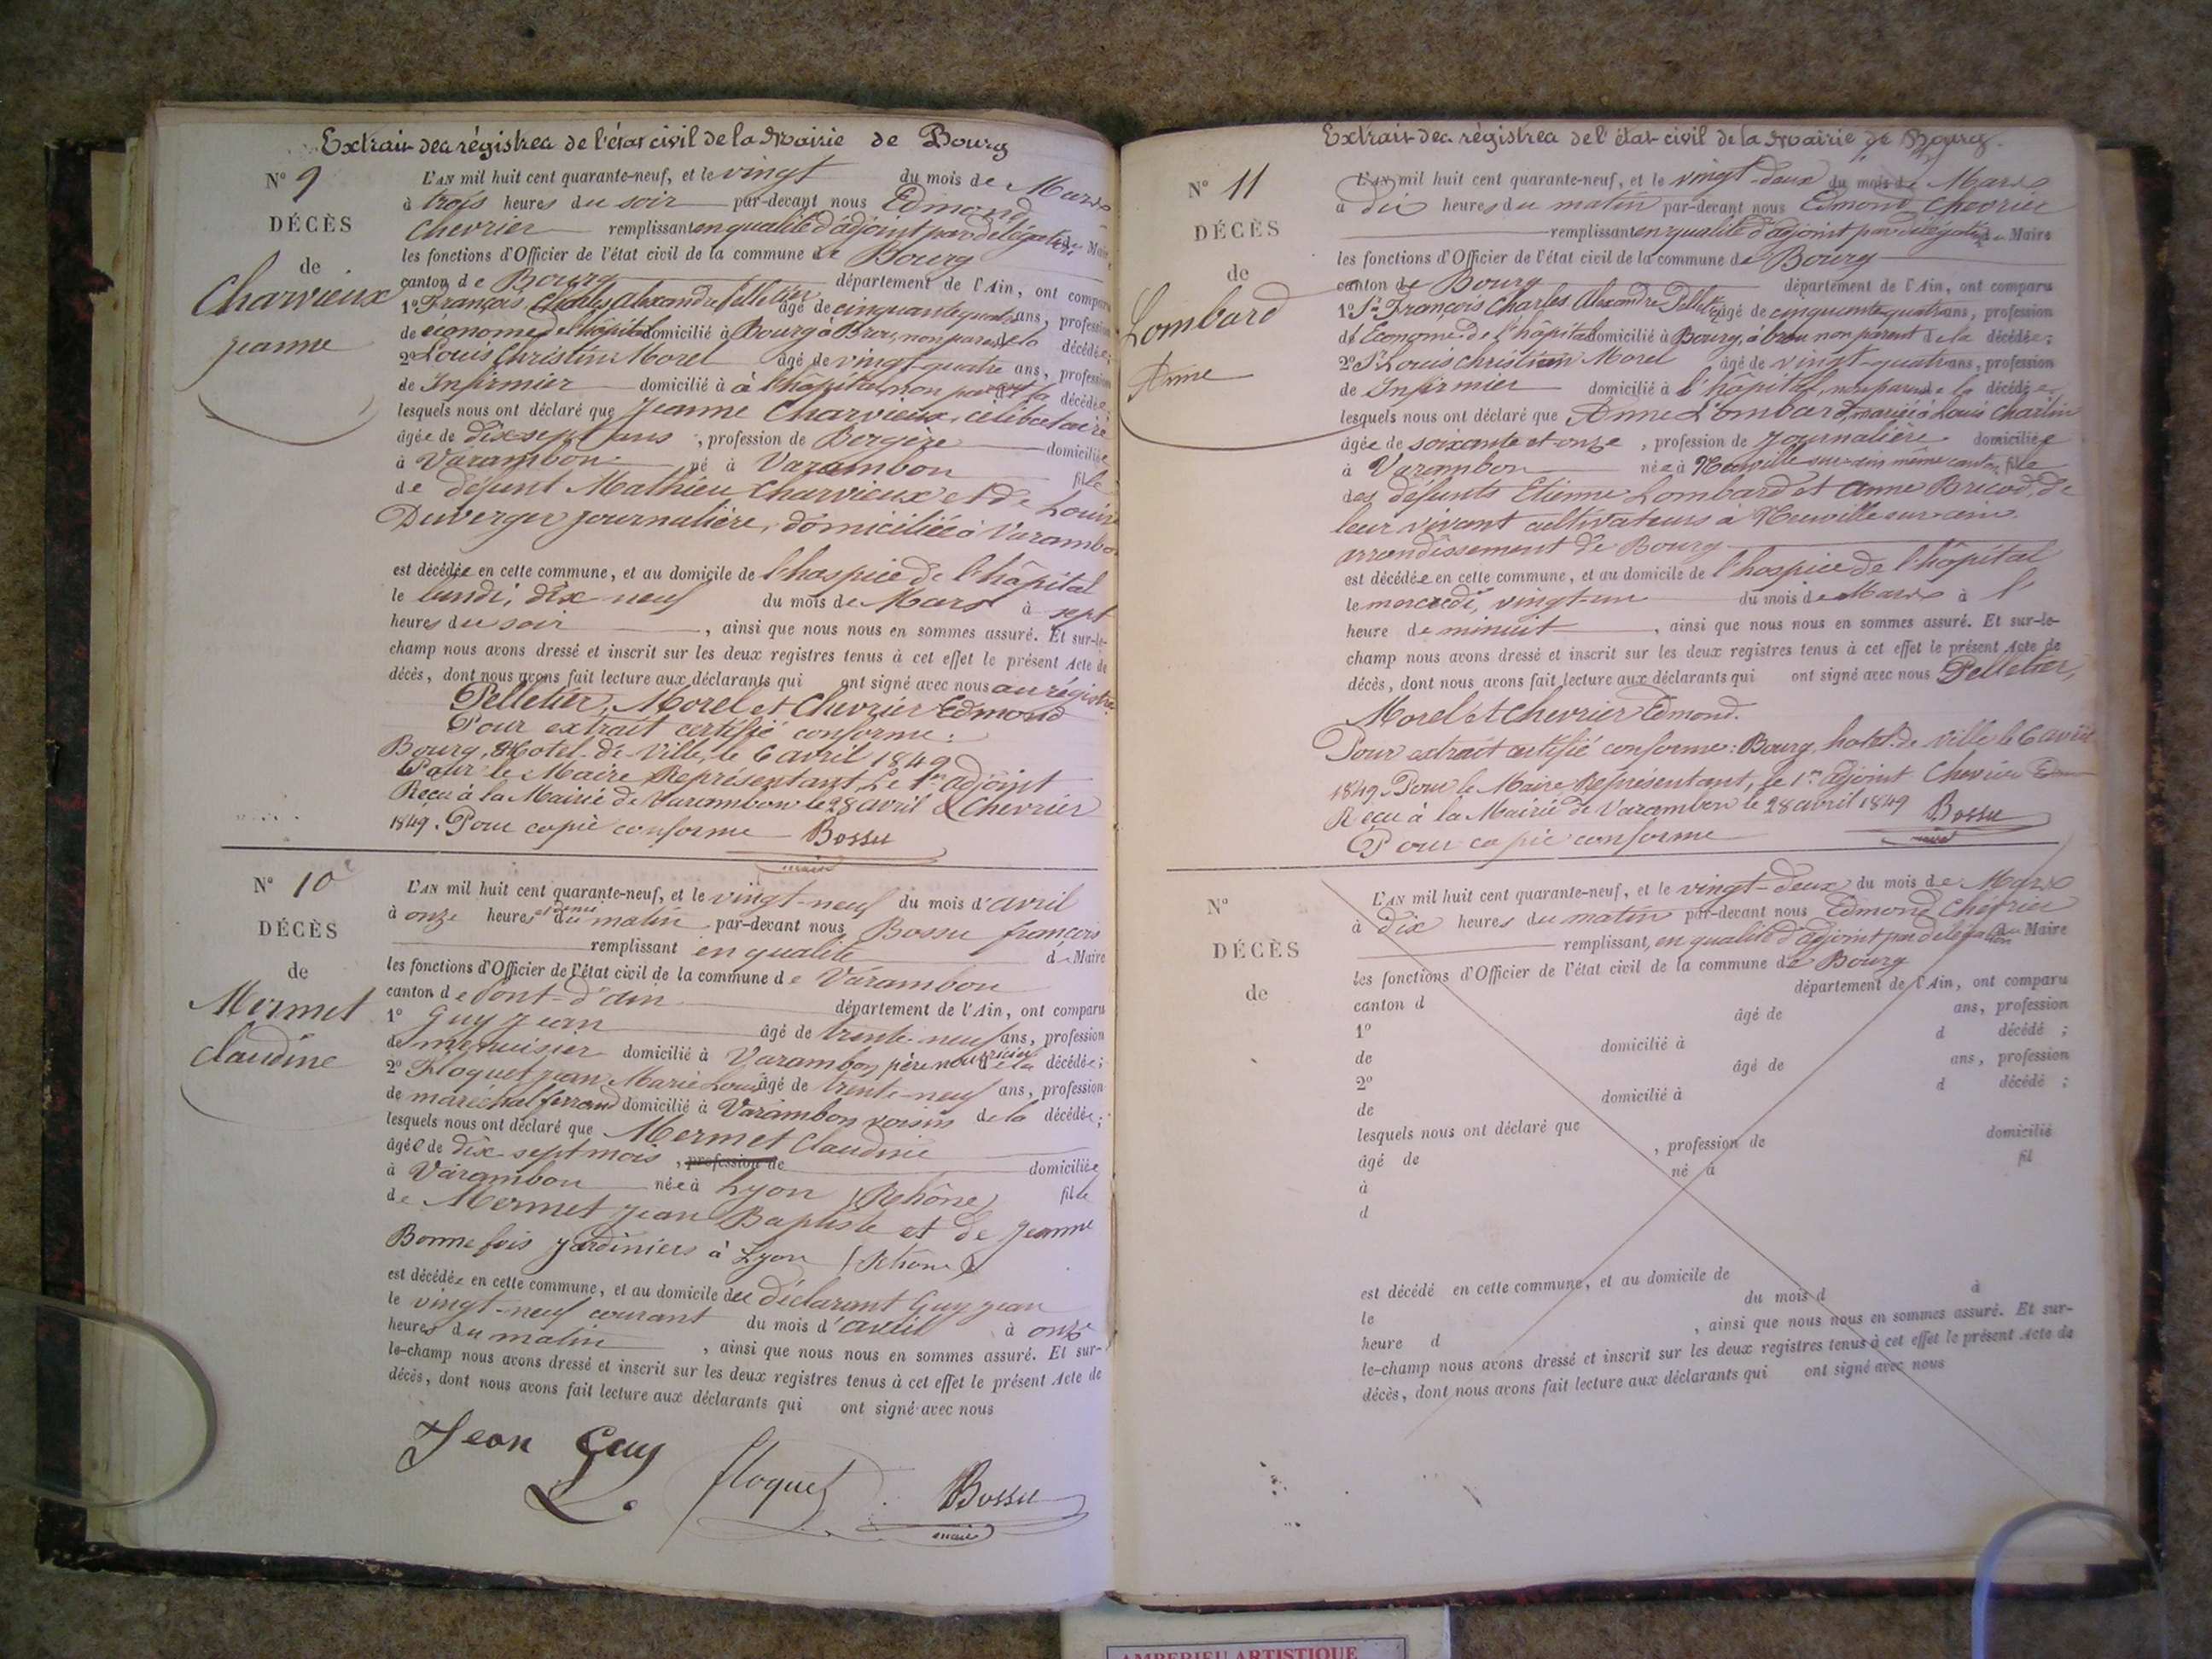 Extrait des régistres de l'état civil de la Mairie de Bourg
N° 9
DÉCÈS
de
Charvieux
jeanne
L'AN mil huit cent quarante-neuf, et le vingt du mois de Mars
à trois heures du soir par-devant nous Edmond
Chevrier remplissant en qualité d'adjoint par délégation du Maire
les fonctions d'Officier de l'état civil de la commune de Bourg
canton de Bourg département de l'Ain, ont comparu
1° François Charles alexandre Pelletier âgé de cinquante quatre ans, profession
de économe de l'hôpital domicilié à Bourg à Brou, non parent de la décédée;
2° Louis Christin Morel âgé de vingt-quatre ans, profession
de Infirmier domicilié à à l'hôpital, non parent de la décédée;
lesquels nous ont déclaré que Jeanne Charvieux, célibataire
âgée de dix sept ans, profession de Bergère domiciliée
à Varambon né à Varambon fille
de défunt Mathieu Charvieux et de Louise
Duverger journalière, domiciliée à Varambon
est décédée en cette commune, et au domicile de l'hospice de l'hôpital
le lundi, dix neuf du mois de Mars à sept
heures du soir, ainsi que nous nous en sommes assuré. Et sur-le-
champ nous avons dressé et inscrit sur les deux registres tenus à cet effet le présent Acte de
décès, dont nous avons fait lecture aux déclarants qui ont signé avec nous au régistre
Pelletier, Morel et Chevrier Edmond
Pour extrait certifié conforme:
Bourg, Hotel-de-Ville, le 6 avril 1849
Pour le Maire Représentant, Le 1er adjoint
Reçu à la Mairie de Varambon le 28 avril E Chevrier
1849. Pour copie conforme Bossu
maire
N° 10
DÉCÈS
de
Mermet
claudine
L'AN mil huit cent quarante-neuf, et le vingt-neuf du mois d'avril
à onze heures et demie du matin par-devant nous Bossu françois
remplissant en qualité de Maire
les fonctions d'Officier de l'état civil de la commune de Varambon
canton de Pont-d'ain département de l'Ain, ont comparu
1° Guy jean âgé de trente-neuf ans, profession
de menuisier domicilié à Varambon père nourricier de la décédée;
2° Floquet jean Marie Louis âgé de trente-neuf ans, profession
de maréchal ferrand domicilié à Varambon voisin de la décédée;
lesquels nous ont déclaré que Mermet Claudine
âgée de dix-sept mois, profession de domiciliée
à Varambon née à Lyon (Rhône) fille
de Mermet jean Baptiste et de Jeanne
Bonnefois jardiniers à Lyon (Rhône)
est décédée en cette commune, et au domicile du déclarant Guy jean
le vingt-neuf courant du mois d'avril à onze
heures du matin, ainsi que nous nous en sommes assuré. Et sur-
le-champ nous avons dressé et inscrit sur les deux registres tenus à cet effet le présent Acte de
décès, dont nous avons fait lecture aux déclarants qui ont signé avec nous
Jean Guy
floquet Bossu
maire
Extrait des régistres de l'état civil de la Mairie de Bourg.
N° 11
DÉCÈS
de
Lombard
Anne
L'AN mil huit cent quarante-neuf, et le vingt-deux du mois de Mars
à dix heures du matin par-devant nous Edmond Chevrier
remplissant en qualité d'adjoint par délégation du Maire
les fonctions d'Officier de l'état civil de la commune de Bourg
canton de Bourg département de l'Ain, ont comparu
1° Sr François Charles Alexandre Pelletier âgé de cinquante-quatre ans, profession
de Econome de l'hôpital domicilié à Bourg, à brou non parent de la décédée;
2° Sr Louis Christin Morel âgé de vingt-quatre ans, profession
de Infirmier domicilié à l'hôpital, non parent de la décédée
lesquels nous ont déclaré que Anne Lombard, mariée à Louis Charlin
âgée de soixante et onze, profession de Journalière domiciliée
à Varambon née à Neuville sur ain même canton, fille
des défunts Etienne Lombard et Anne Bricod, de
leur vivant cultivateurs à Neuville sur ain
arrondissement de Bourg
est décédée en cette commune, et au domicile de l'hospice de l'hôpital
le mercredi, vingt-un du mois de Mars à l'
heure de minuit, ainsi que nous nous en sommes assuré. Et sur-le-
champ nous avons dressé et inscrit sur les deux registres tenus à cet effet le présent Acte de
décès, dont nous avons fait lecture aux déclarants qui ont signé avec nous Pelletier,
Morel et Chevrier Edmond.
Pour extrait certifié conforme: Bourg, hotel-de ville le 6 avril
1849. Pour le Maire Représentant, le 1er adjoint Chevrier
Reçu à la Mairie de Varambon le 28 avril 1849 Bossu
Pour copie conforme maire
N°
DÉCÈS
de
L'AN mil huit cent quarante-neuf, et le vingt-deux du mois de Mars
à dix heures du matin par-devant nous Edmond Chevrier
remplissant, en qualité d'adjoint par délégation du Maire
les fonctions d'Officier de l'état civil de la commune de Bourg
canton d département de l'Ain, ont comparu
1° âgé de ans, profession
de domicilié à d décédé ;
2° âgé de ans, profession
de domicilié à d décédé ;
lesquels nous ont déclaré que
âgé de , profession de domicilié
à né à fil
d
est décédé en cette commune, et au domicile de
le du mois d à
heure d , ainsi que nous nous en sommes assuré. Et sur-
le-champ nous avons dressé et inscrit sur les deux registres tenus à cet effet le présent Acte de
décès, dont nous avons fait lecture aux déclarants qui ont signé avec nous
AMBERIEU ARTISTIQUE